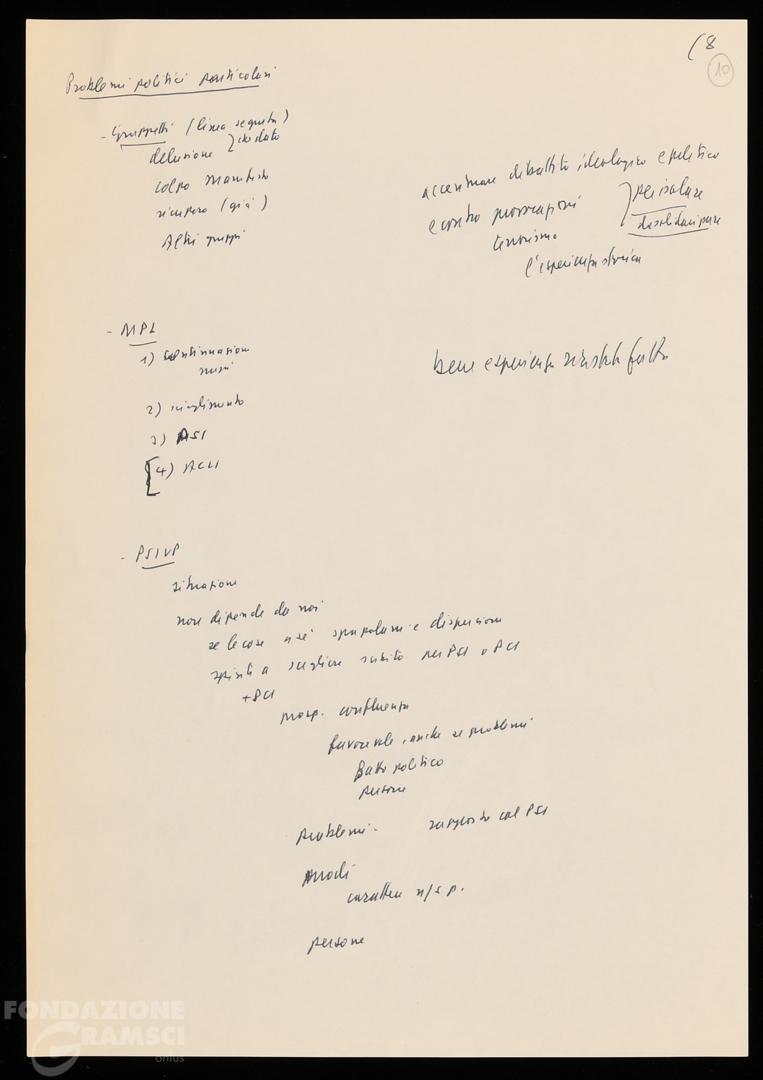 (8
10
Problemi politici particolari
- Gruppetti (linea seguita)
delusione
colpo Manifesto
recupero (già)
Altri gruppi
accentuare dibattito ideologico e politico
e contro provocazioni
terrorismo
per isolare
l'esperienza storica
- MPL
1) continuazione
2) scioglimento
3) PSI
[4) ACLI
bene esperienza sin
- PSIUP
situazione
non dipende da noi
se lecose a sé e dispersione
spinti a scegliere subito per PSI o PCI
+ PCI
prosp. confluenza
favorevole, anche se problemi
fatto politico
persone
problemi. rapporto col PSI
modi
carattere n/s p.
persone
FONDAZIONE
GRAMSCI
onlus